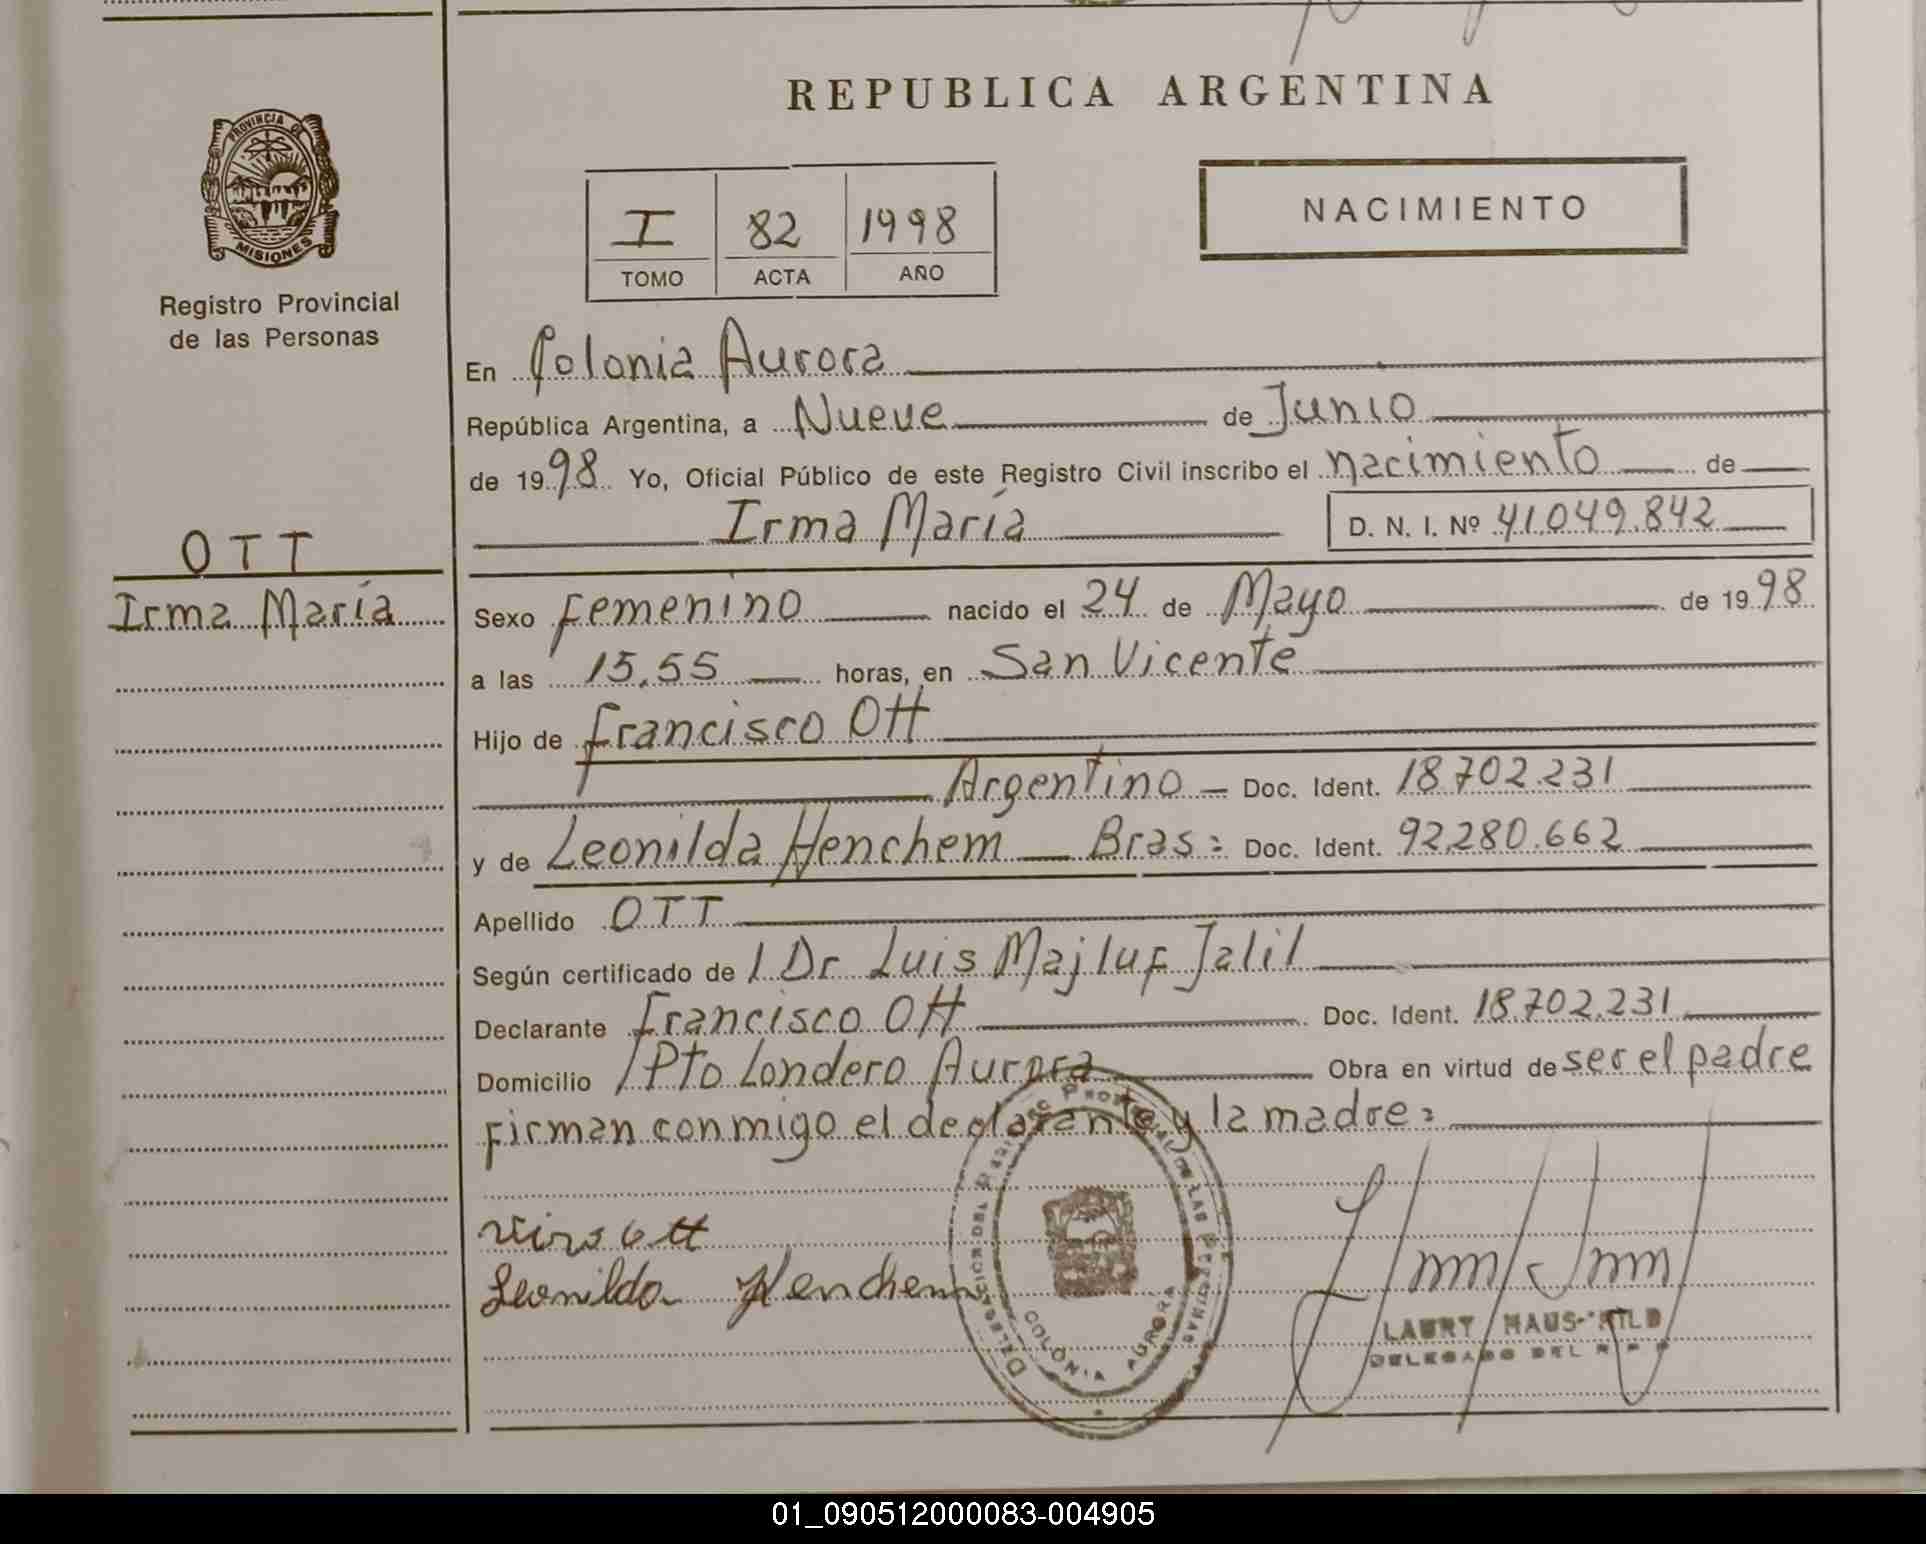 REPUBLICA ARGENTINA
PROVINCIA DE MISIONES
Registro Provincial
de las Personas
I 82 1998
TOMO ACTA AÑO
NACIMIENTO
En Colonia Aurora
República Argentina, a Nueve de Junio
de 1998 Yo, Oficial Público de este Registro Civil inscribo el nacimiento de
Irma María D. N. I. Nº 41.049.842
OTT
Irma María
Sexo Femenino nacido el 24 de Mayo de 1998
a las 15.55 horas, en San Vicente
Hijo de Francisco Ott
Argentino Doc. Ident. 18.702.231
y de Leonilda Henchem Bras: Doc. Ident. 92.280.662
Apellido OTT
Según certificado de l Dr Luis Majluf Jalil
Declarante Francisco Ott Doc. Ident. 18.702.231
Domicilio Pto Londero Aurora Obra en virtud de ser el padre
firman conmigo el declarante y la madre:
Ott
Leonilda Henchem
DELEGACION DEL REGISTRO PROVINCIAL DE LAS PERSONAS
COLONIA AURORA
LAURY
DELEGADO DEL R P P
01_090512000083-004905